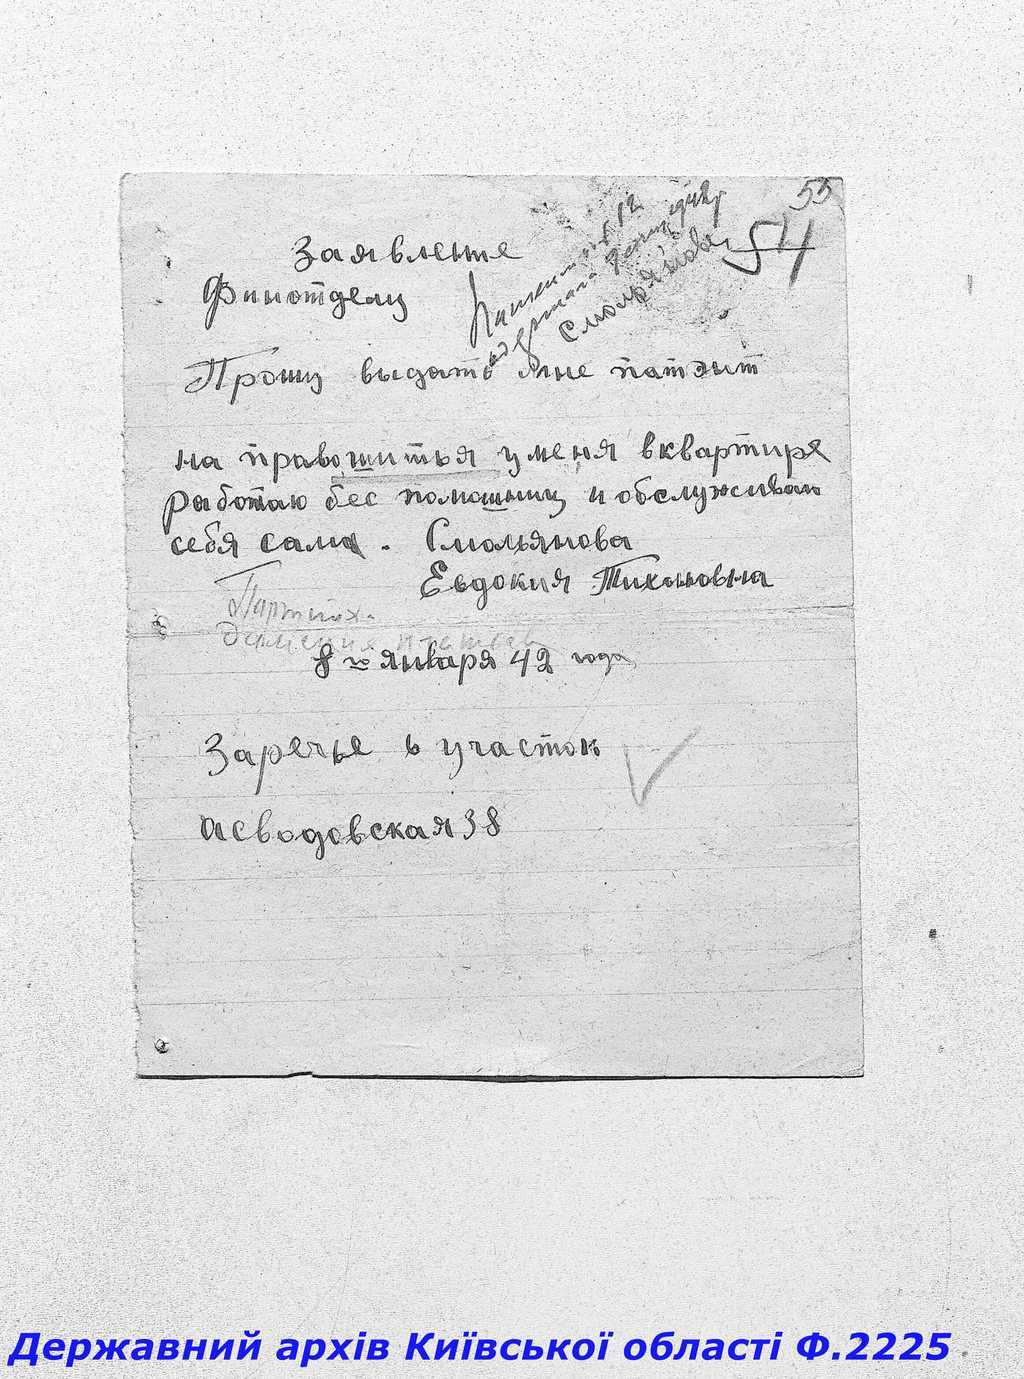 55
54
Заявление
Финотделу
Смольянова
Прошу выдать мне патэнт
на право шитья у меня в квартире
Работаю бес помошниц и обслуживаю
себя сама. Смольянова
Евдокия Тихоновна
8 го января 42 года
Заречье 6 участок
Асводовская 38
Державний архів Київської області Ф.2225